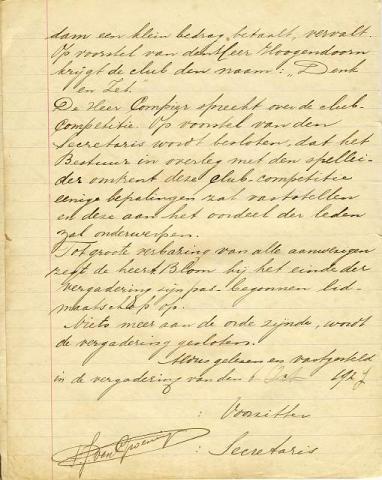 dam een klein bedrag, betaalt, vervalt.
Op voorstel van den Heer Hoogendoorn
krijgt de club den naam: „Denk
en Zet.
De Heer spreekt over de club-
competitie. Op voorstel van den
Secretaris wordt besloten, dat het
Bestuur in overleg met den spellei-
der omtrent deze club-competitie
eenige bepalingen zal vaststellen
en deze aan het oordeel der leden
zal onderwerpen.
Tot groote verbazing van alle aanwezigen
zegt de heer Blom bij het einde der
vergadering zijn pas-begonnen lid-
maatschap op.
Niets meer aan de orde zijnde, wordt
de vergadering gesloten.
Aldus gelezen en vastgesteld
in de vergadering van den 6 1927
: Voorzitter
: Secretaris